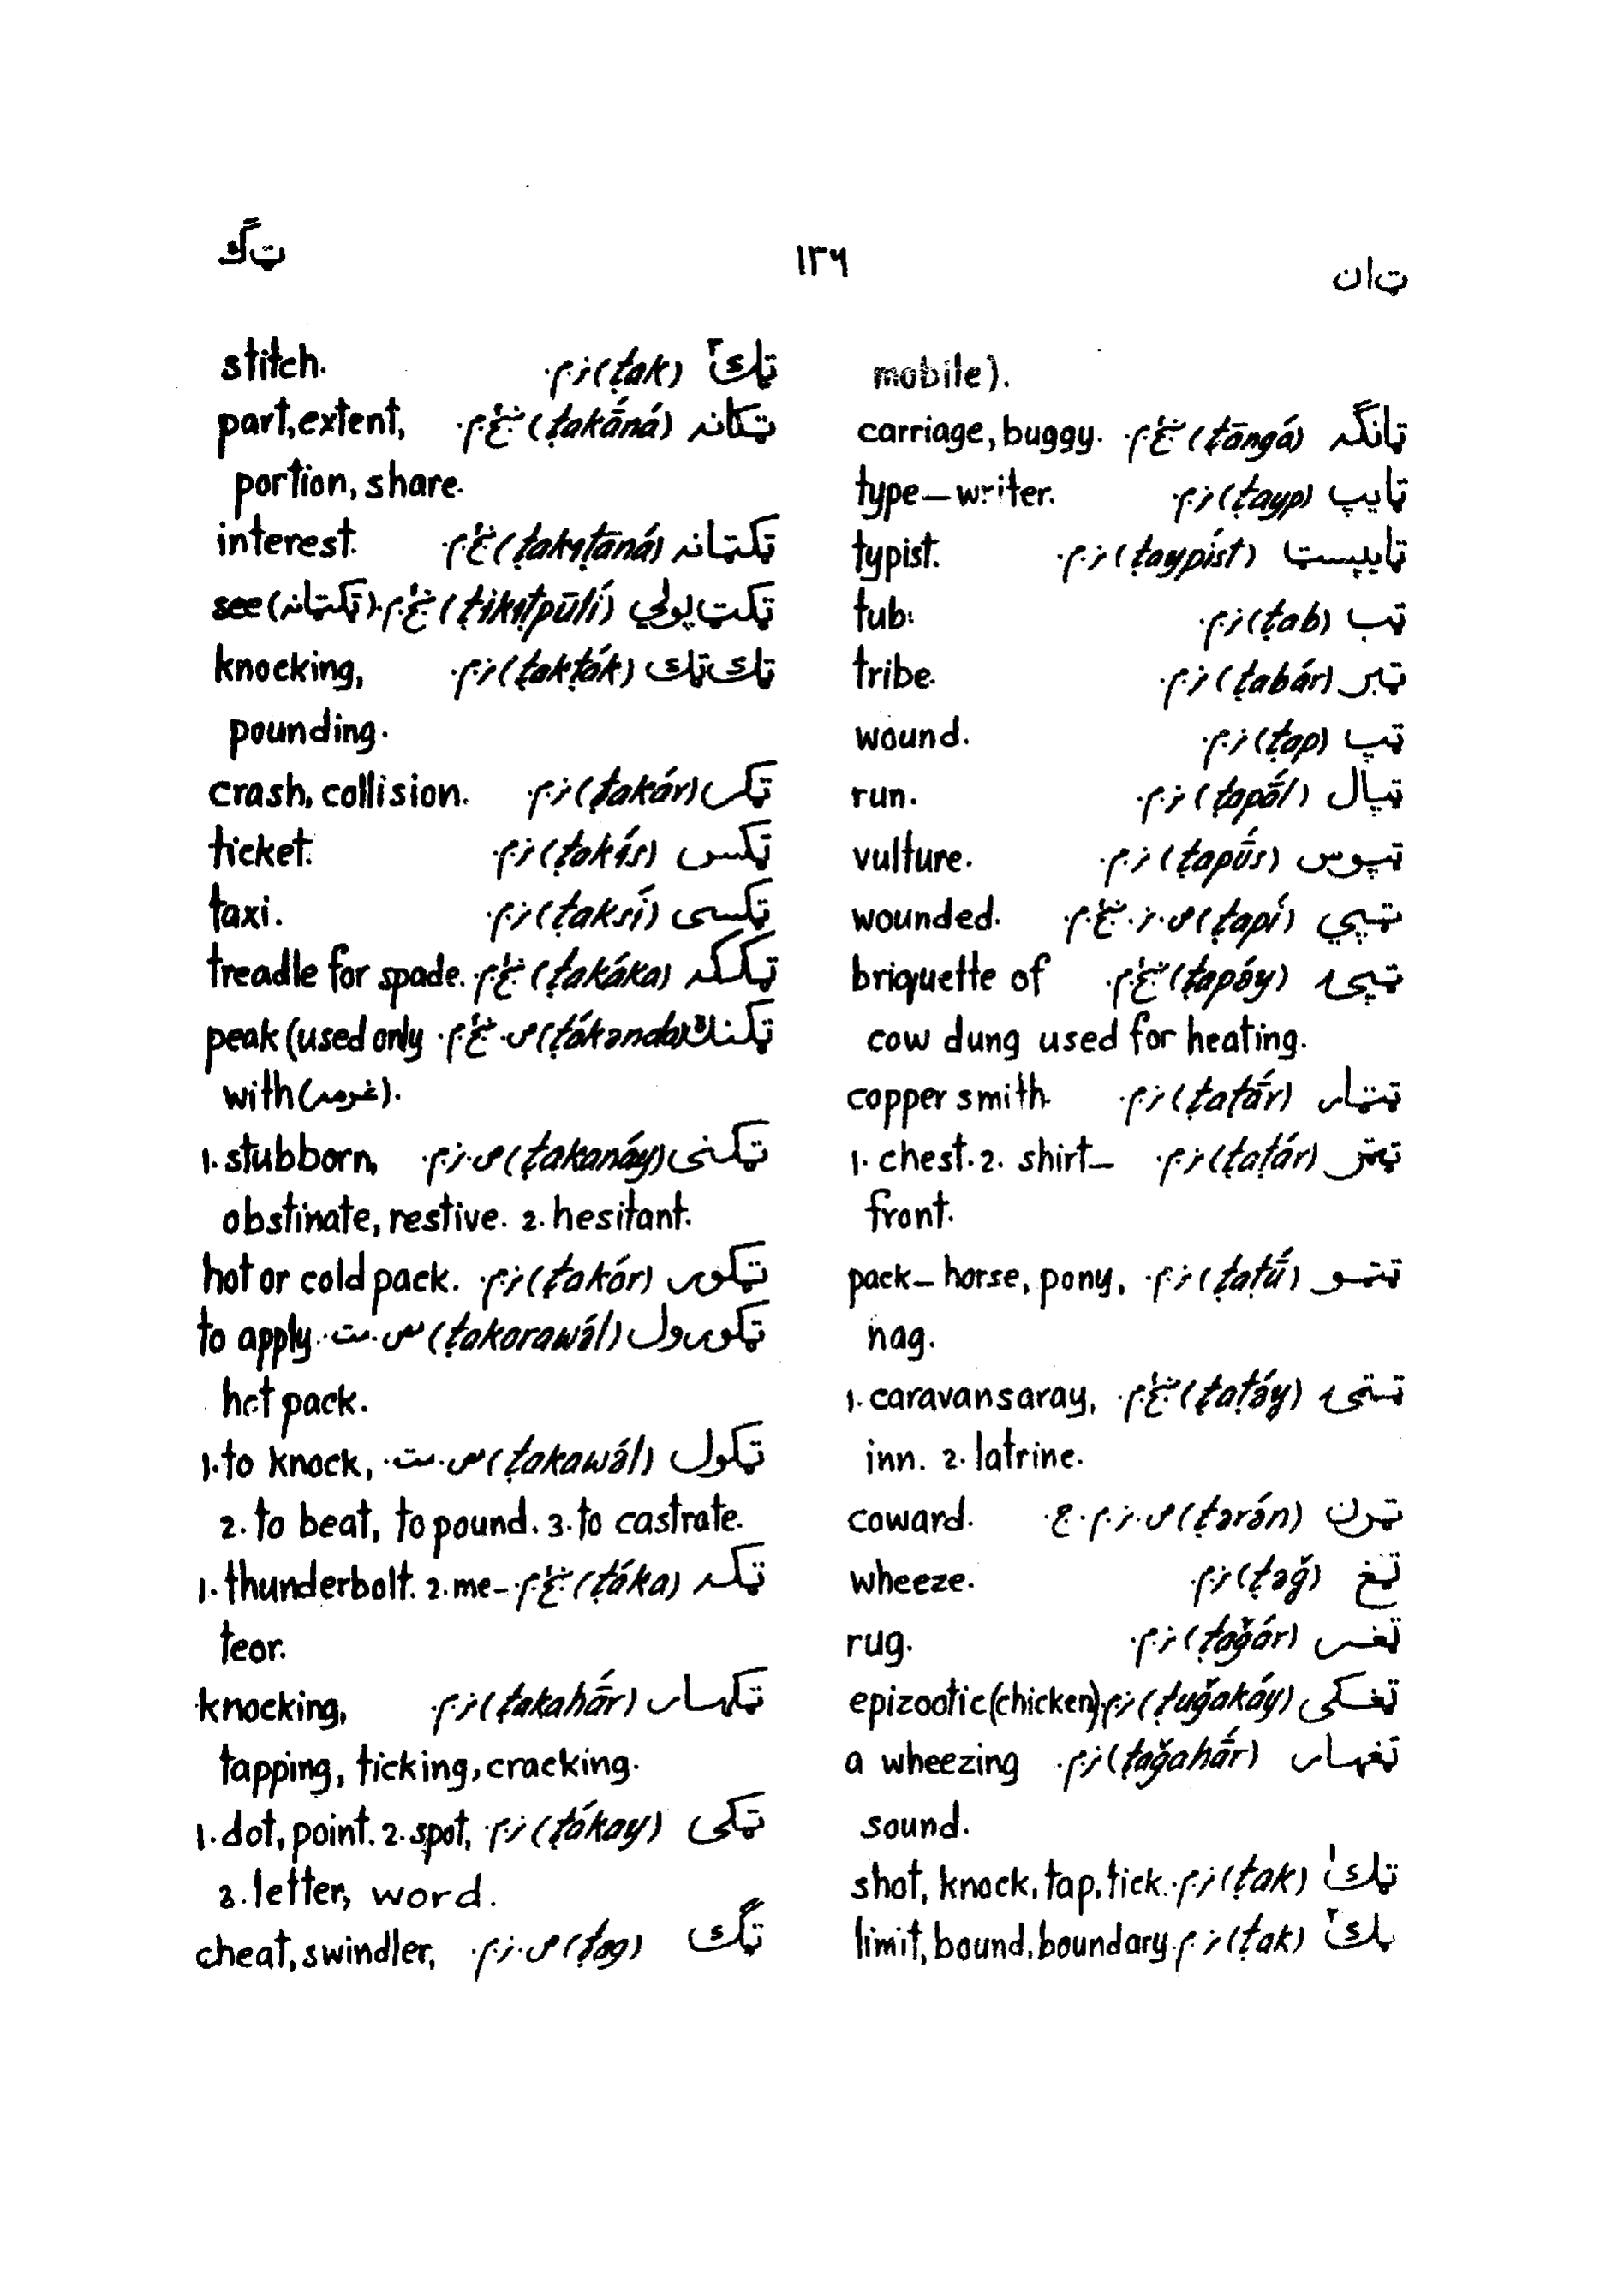 ټان ۱۳۶ ټګ
mobile).
ټانګه (ṭāngá) ښځ.م. carriage, buggy.
ټایپ (ṭayp) نر.م. type–writer.
ټایپست (ṭaypíst) نر.م. typist.
ټب (ṭab) نر.م. tub.
ټبر (ṭabár) نر.م. tribe.
ټپ (ṭap) نر.م. wound.
ټپال (ṭapā́l) نر.م. run.
ټپوس (ṭapū́s) نر.م. vulture.
ټپي (ṭapí) ص.نر.ښځ.م. wounded.
ټپۍ (ṭapə́y) ښځ.م. briquette of
cow dung used for heating.
ټټار (ṭaṭā́r) نر.م. copper smith.
ټټر (ṭaṭár) نر.م. 1. chest. 2. shirt–
front.
ټټو (ṭaṭū́) نر.م. pack– horse, pony,
nag.
ټټۍ (ṭaṭə́y) ښځ.م. 1. caravansaray,
inn. 2. latrine.
ټرن (ṭərə́n) ص.نر.م.ج. coward.
ټغ (ṭəğ) نر.م. wheeze.
ټغر (ṭağár) نر.م. rug.
ټغکی (ṭuğakáy) نر.م. epizootic(chicken)
ټغهار (ṭağahā́r) نر.م. a wheezing
sound.
ټک۱ (ṭak) نر.م. shot, knock, tap, tick.
ټک۲ (ṭak) نر.م. limit, bound, boundary.
ټک۳ (ṭak) نر.م. stitch.
ټکانه (ṭakāná) ښځ.م. part, extent,
portion, share.
ټکټانه (ṭakṭāná) ښځ.م. interest.
ټکټ پولي (ṭikṭpūlí) ښځ.م. see (ټکټانه).
ټک ټک (ṭakṭák) نر.م. knocking,
pounding.
ټکر (ṭakár) نر.م. crash, collision.
ټکس (ṭakís) نر.م. ticket.
ټکسی (ṭaksí) نر.م. taxi.
ټککه (ṭakáka) ښځ.م. treadle for spade.
ټکنده (ṭákanda) ص.ښځ.م. peak (used only
with (غرمه).
ټکنی (ṭakanáy) ص.نر.م. 1. stubborn,
obstinate, restive. 2. hesitant.
ټکور (ṭakór) نر.م. hot or cold pack.
ټکورول (ṭakorawə́l) س.مت. to apply
hot pack.
ټکول (ṭakawə́l) س.مت. 1. to knock,
2. to beat, to pound. 3. to castrate.
ټکه (ṭáka) ښځ.م. 1. thunderbolt. 2. me–
teor.
ټکهار (ṭakahā́r) نر.م. knocking,
tapping, ticking, cracking.
ټکی (ṭákay) نر.م. 1. dot, point. 2. spot,
3. letter, word.
ټګ (ṭag) ص.نر.م. cheat, swindler,